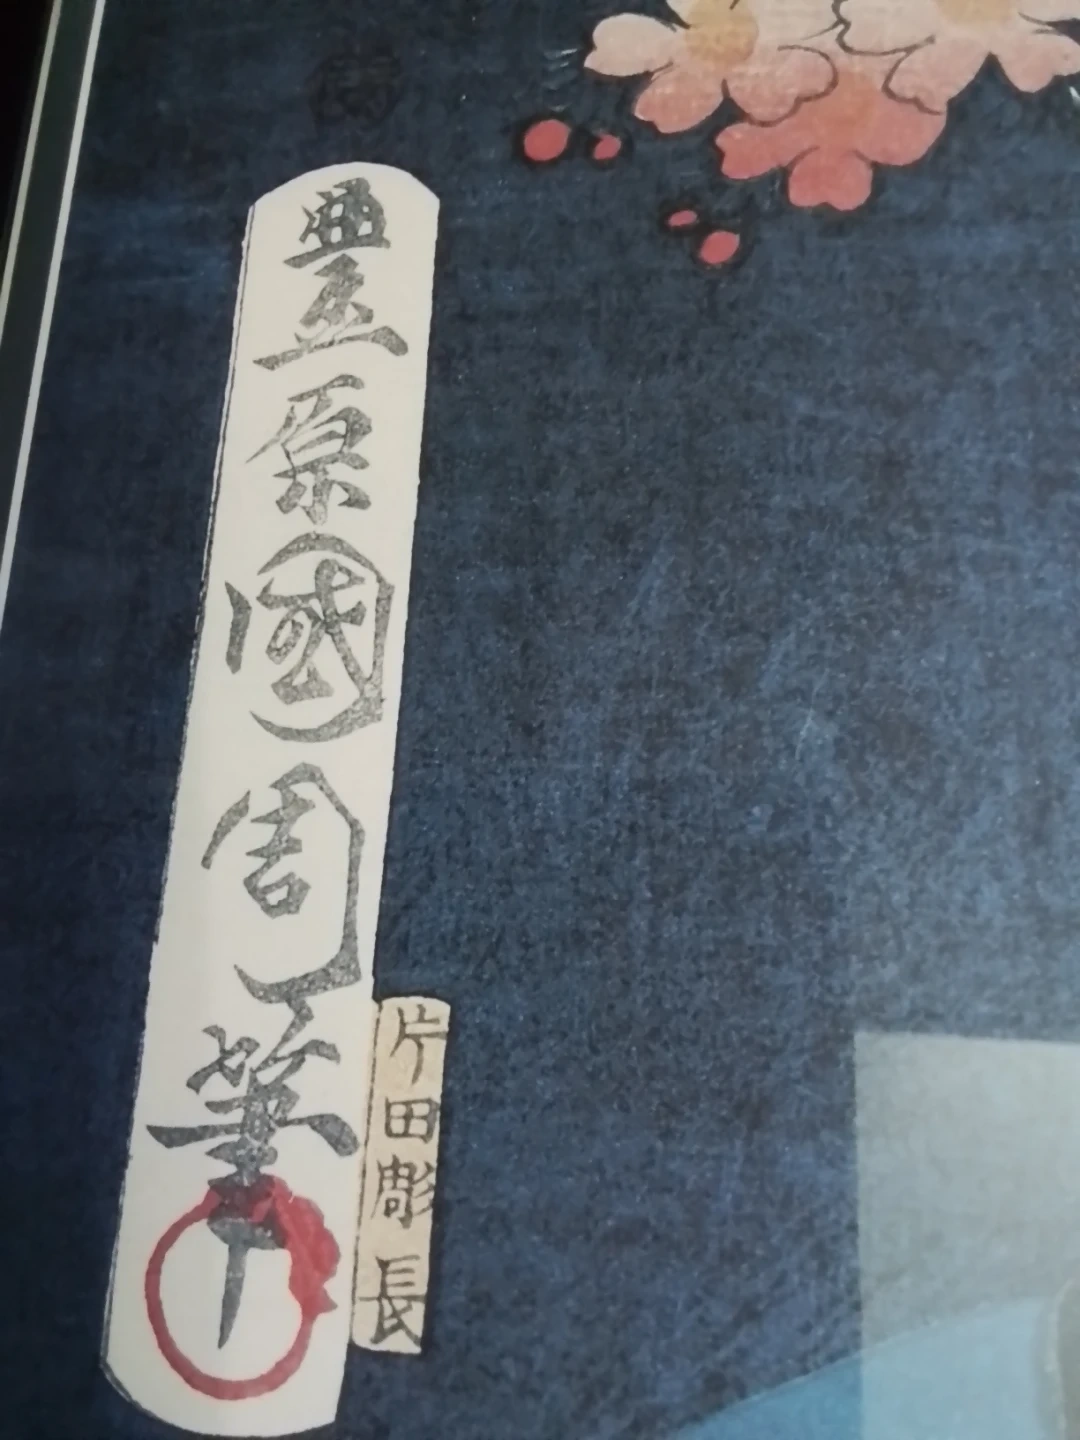 豊原國周筆
片田彫長